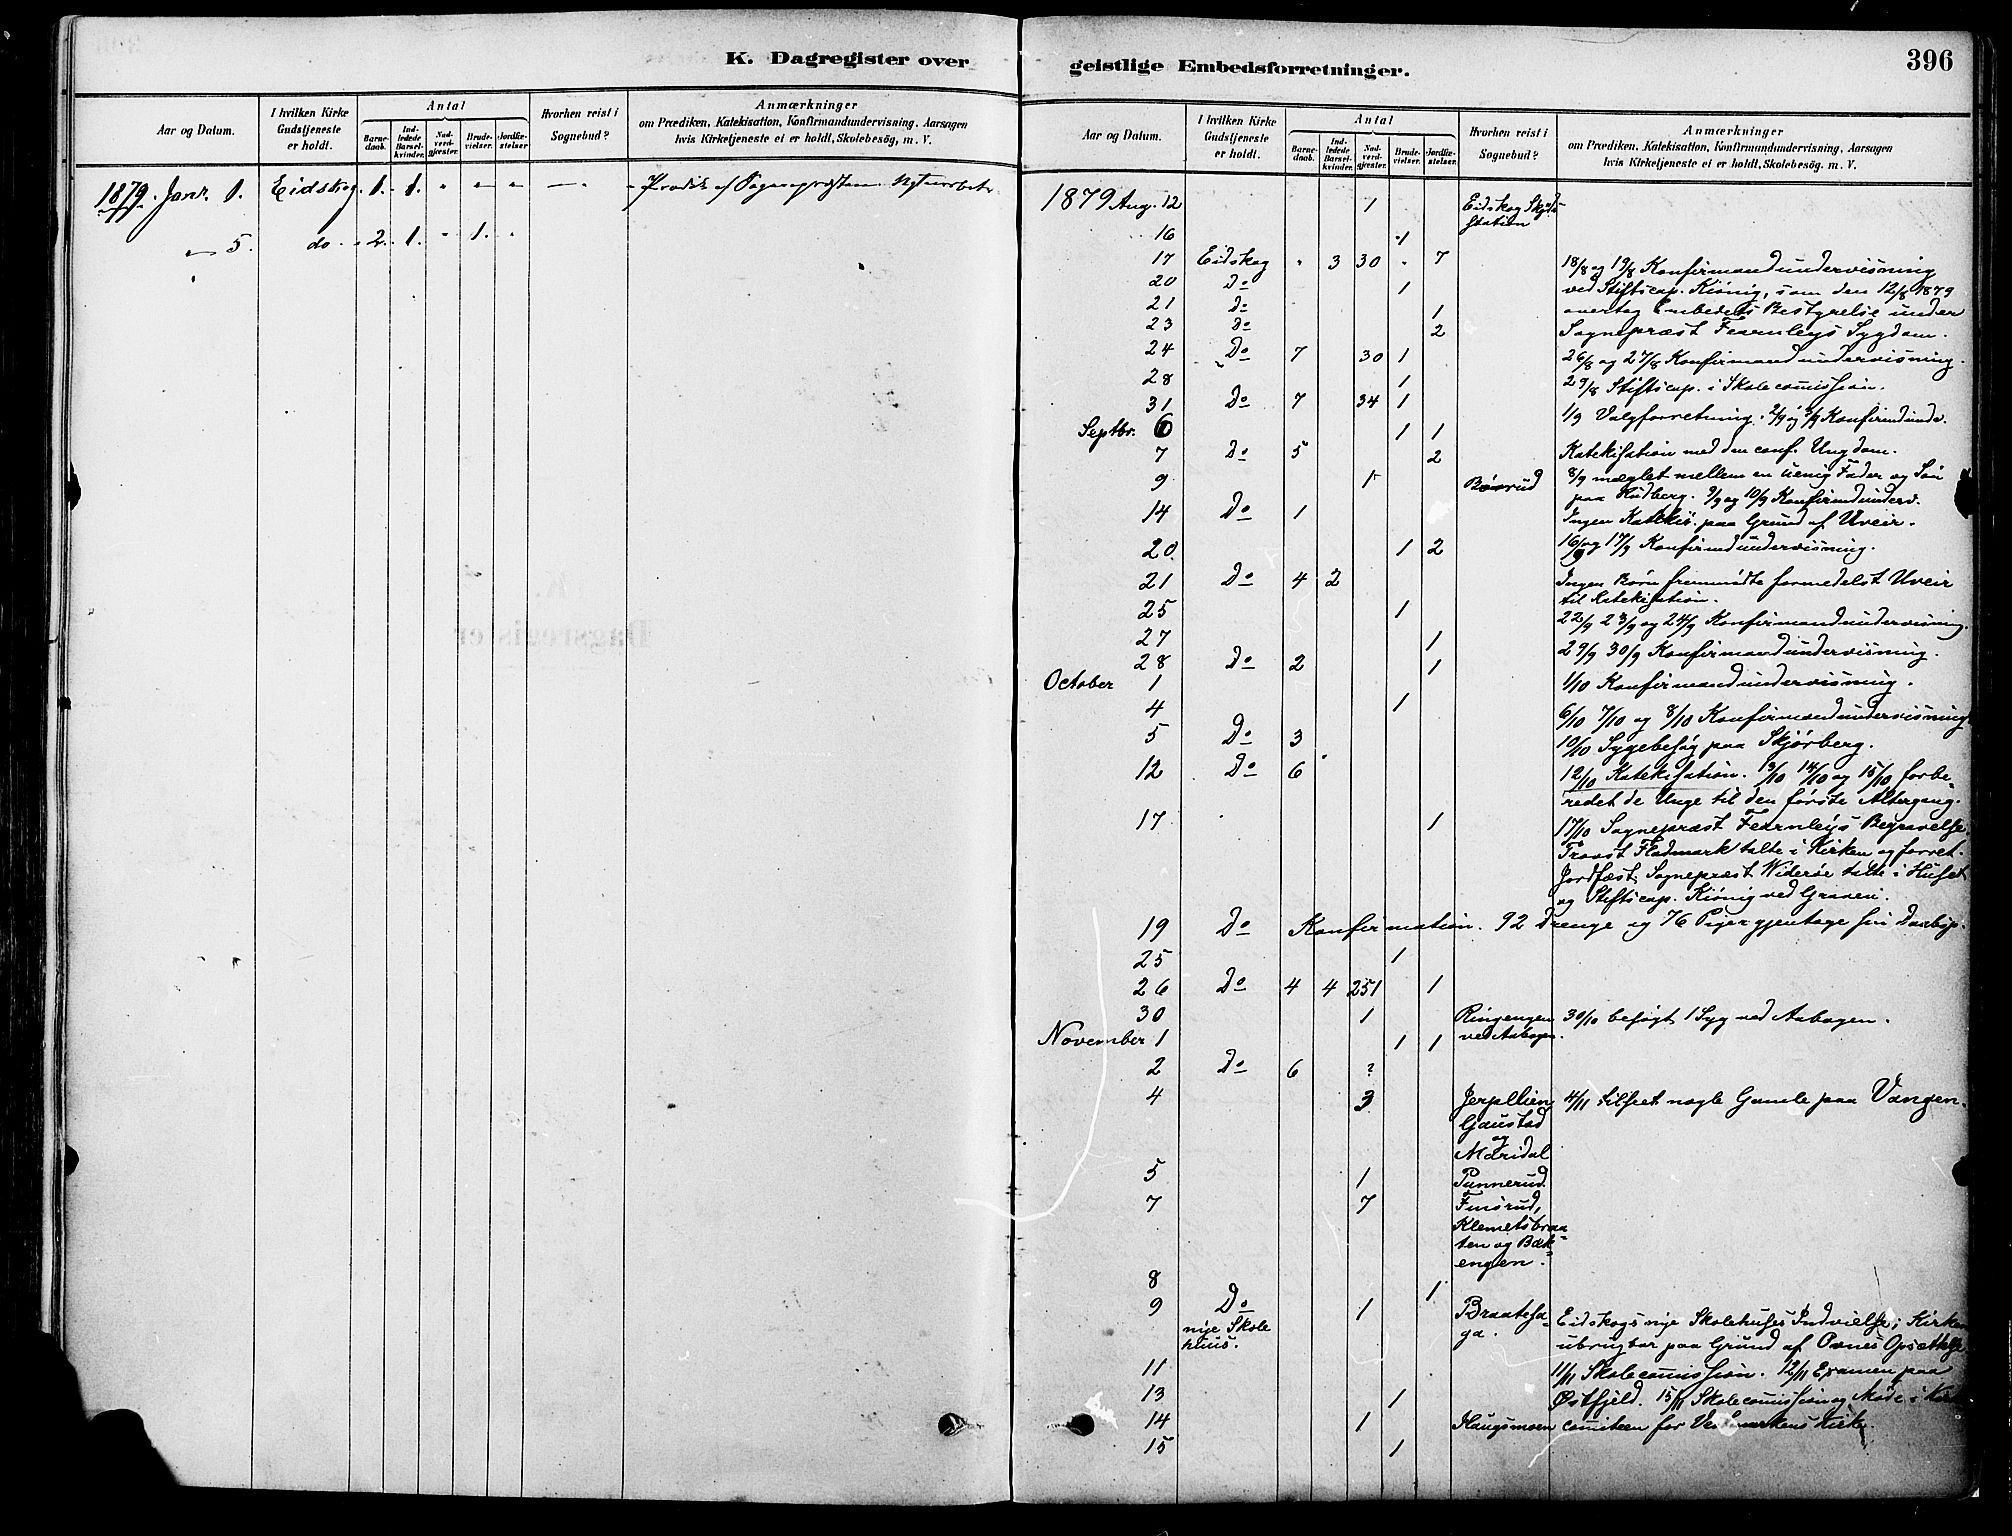 K. Dagregister over
Aar og Datum.
I hvilken Kirke Gudstjeneste er holdt.
Antal
Barnedaab.
Indledede Barselkvinder.
Nadverdgjester.
Brudevielser.
Jordfæstelser
Hvorhen reist i Sognebud?
Anmærkninger
om Prædiken, Katekisation, Konfirmandundervisning, Aarsagen
hvis Kirketjeneste ei er holdt, Skolebesøg, m. V.
1879. Janr. 1. Eidskog 1. 1. " " " — Prædik af Sognepræsten.
" 5. do 2. 1. " 1. "
geistlige Embedsforretninger.
396
Aar og Datum.
I hvilken Kirke Gudstjeneste er holdt.
Antal
Barnedaab.
Indledede Barselkvinder.
Nadverdgjester.
Brudevielser.
Jordfæstelser.
Hvorhen reist i Sognebud?
Anmærkninger
om Prædiken, Katekisation, Konfirmandundervisning, Aarsagen
hvis Kirketjeneste ei er holdt, Skolebesøg, m. V.
1879 Aug. 12 1 Eidskog Skyds-
station
16 1
17 Eidskog " 3 30 " 7 18/8 og 19/8 Konfirmandundervisning
20 Do 1 ved Stiftscap. Kiønig, som den 12/8 1879
21 Do 1 overtog Embedets Bestyrelse under
23 Do 2 Sognepræst Fearnleys Sygdom.
24 Do 7 30 1 26/8 og 27/8 Konfirmandundervisning.
28 1 29/8 Stiftscap. i Skolecomission.
31 Do 7 34 1 1/9 Valgforretning. 2/9 og 3/9 Konfirmdundv.
Septbr. 6 1 1
7 Do 5 2 Katekisation med den conf. Ungdom.
9 1 Bøsrud 8/9 mæglet mellem en uenig Fader og Søn
paa Rudberg. 9/9 og 10/9 Konfirmdunderv.
14 Do 1 Ingen Katekis. paa Grund af Uveir.
20 1 2 16/9 og 17/9 Konfirmdundervisning.
21 Do 4 2 Ingen Børn fremmødte formedelst Uveir
til Katekisation.
25 1 22/9 23/9 og 24/9 Konfirmandundervisning.
27 1
28 Do 2 1 29/9 30/9 Konfirmandundervisning.
October 1 1/10 Konfirmandundervisning.
4 1 6/10 7/10 og 8/10 Konfirmandundervisning
5 Do 3 10/10 Sygebesøg paa Skjørberg.
12 Do 6 12/10 Katekisation. 13/10 14/10 og 15/10 forbe-
redet de Unge til den første Altergang.
17 1 17/10 Sognepræst Fearnleys Begravelse.
Provst Fladmark talte i Kirken og forret.
Jordfæst. Sognepræst Widerøe talte i Huset
og Stiftscap. Kiønig ved Graven.
19 Do Konfirmation. 92 Drenge og 76 Piger gjentage sin Daabsp.
25 1
26 Do 4 4 251 1
30 1 Ringengen 30/10 besøgt 1 Syg ved Aabogen.
ved Aabogen.
November 1 1 1
2 Do 6 ?
4 3 Jerpllien 4/11 tilseet nogle Gamle paa Vangen.
Gaustad
og
Mæridal
5 1 Punnerud.
7 7 Finsrud,
Klemetsbraa-
ten og Bæk-
engen.
8 1
9 Do 1 Braatesa- Eidskogs nye Skolehuses Indvielse; Kirken
nye Skole ga. ubrugbar paa Grund af Ovnes Opsættelse
huus.
11 11/11 Skolecomission. 12/11 Examen paa
13 1 Østfjeld. 15/11 Skolecomission og Møde i
14 1 Haugsmoen comiteen for Vestmarkens Kirke.
15 1